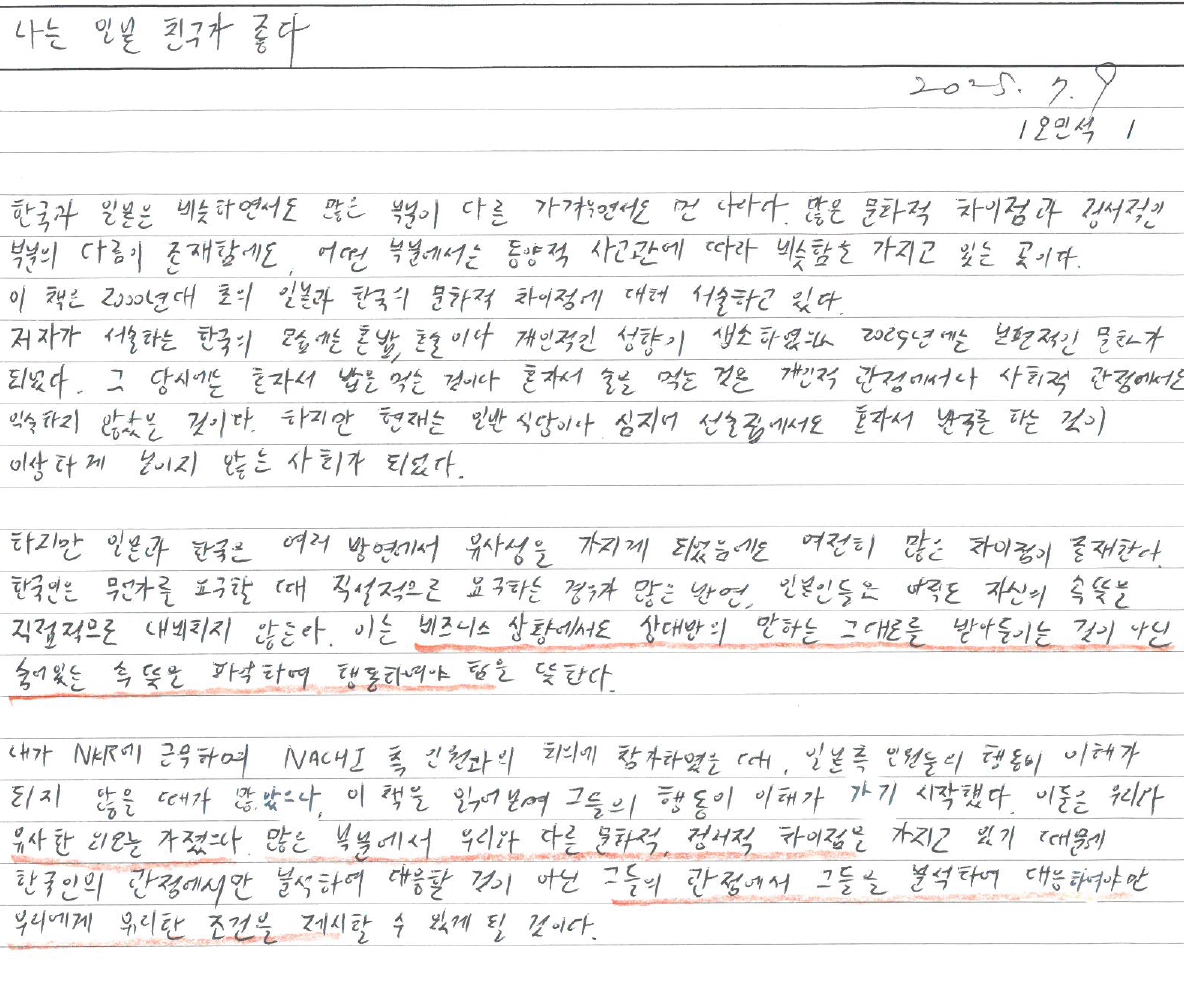 나는 일본 친구가 좋다
2025. 7. 9
/ 오민석 /
한국과 일본은 비슷하면서도 많은 부분이 다른 가까우면서도 먼 나라다. 많은 문화적 차이점과 정서적인
부분의 다름이 존재함에도, 어떤 부분에서는 동양적 사고관에 따라 비슷함을 가지고 있는 곳이다.
이 책은 2000년대 초의 일본과 한국의 문화적 차이점에 대해 서술하고 있다.
저자가 서술하는 한국의 모습에는 혼밥, 혼술이나 개인적인 성향이 생소하였으나 2025년에는 보편적인 문화가
되었다. 그 당시에는 혼자서 밥을 먹는 것이나 혼자서 술을 먹는 것은 개인적 관점에서나 사회적 관점에서도
익숙하지 않았을 것이다. 하지만 현재는 일반 식당이나 심지어 선술집에서도 혼자서 반주를 하는 것이
이상하게 보이지 않는 사회가 되었다.
하지만 일본과 한국은 여러 방면에서 유사성을 가지게 되었음에도 여전히 많은 차이점이 존재한다.
한국인은 무언가를 요구할 때 직설적으로 요구하는 경우가 많은 반면, 일본인들은 아직도 자신의 속뜻을
직접적으로 내비치지 않는다. 이는 비즈니스 상황에서도 상대방의 말하는 그대로를 받아들이는 것이 아닌
숨어있는 속 뜻을 파악하여 행동하여야 함을 뜻한다.
내가 NKR에 근무하며 NACHI 측 인원과의 회의에 참가하였을 때, 일본측 인원들의 행동이 이해가
되지 않을 때가 많았으나, 이 책을 읽어보며 그들의 행동이 이해가 가기 시작했다. 이들은 우리와
유사한 외모를 가졌으나, 많은 부분에서 우리와 다른 문화적, 정서적 차이점을 가지고 있기 때문에
한국인의 관점에서만 분석하여 대응할 것이 아닌 그들의 관점에서 그들을 분석하여 대응하여야만
우리에게 유리한 조건을 제시할 수 있게 될 것이다.